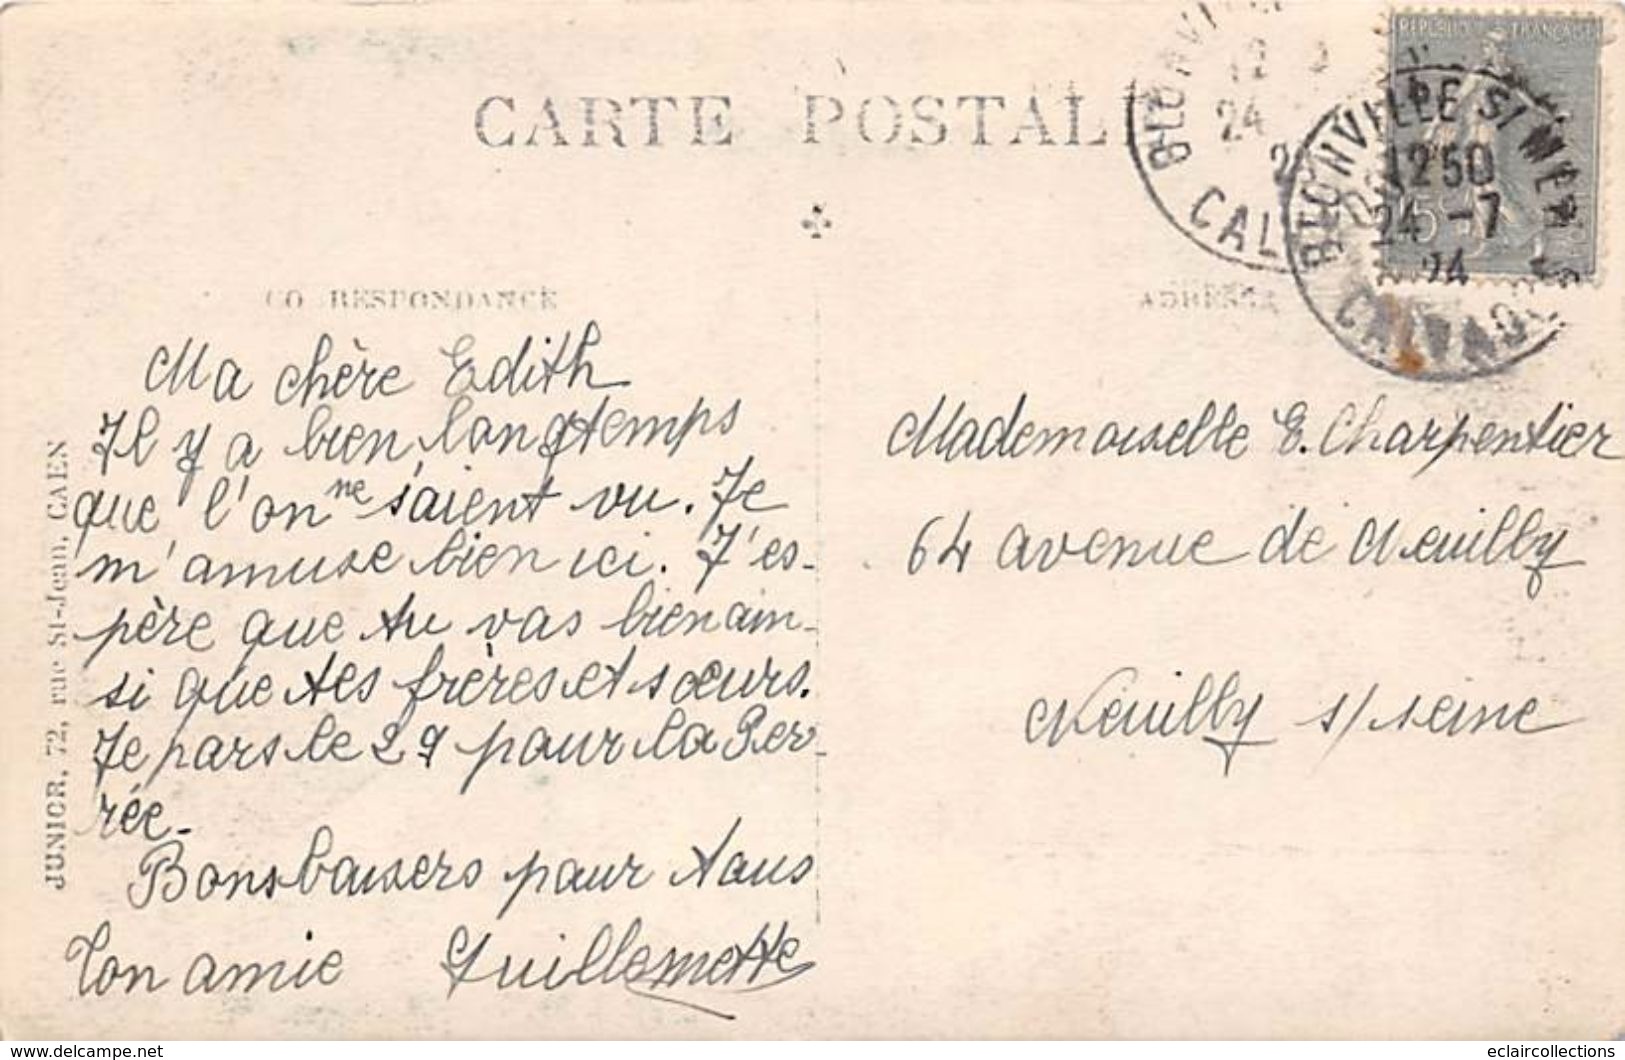 CARTE POSTALE
CO RESPONDANCE
ADRESSE
RÉPUBLIQUE FRANÇAISE
BLONVILLE S! MER
12 50
24 -7
24
CALVADOS
24
CAL
Ma chère Edith
Il y a bien longtemps
que l'on ne s'aient vu. Je
m'amuse bien ici. J'es-
père que tu vas bien ain-
si que tes frères et sœurs.
Je pars le 29 pour la Per-
rée.
Bons baisers pour tous
Ton amie Guillemette
Mademoiselle E. Charpentier
64 avenue de Neuilly
Neuilly s/ seine
JUNIOR, 72, rue St-Jean, CAEN
eclaircollections